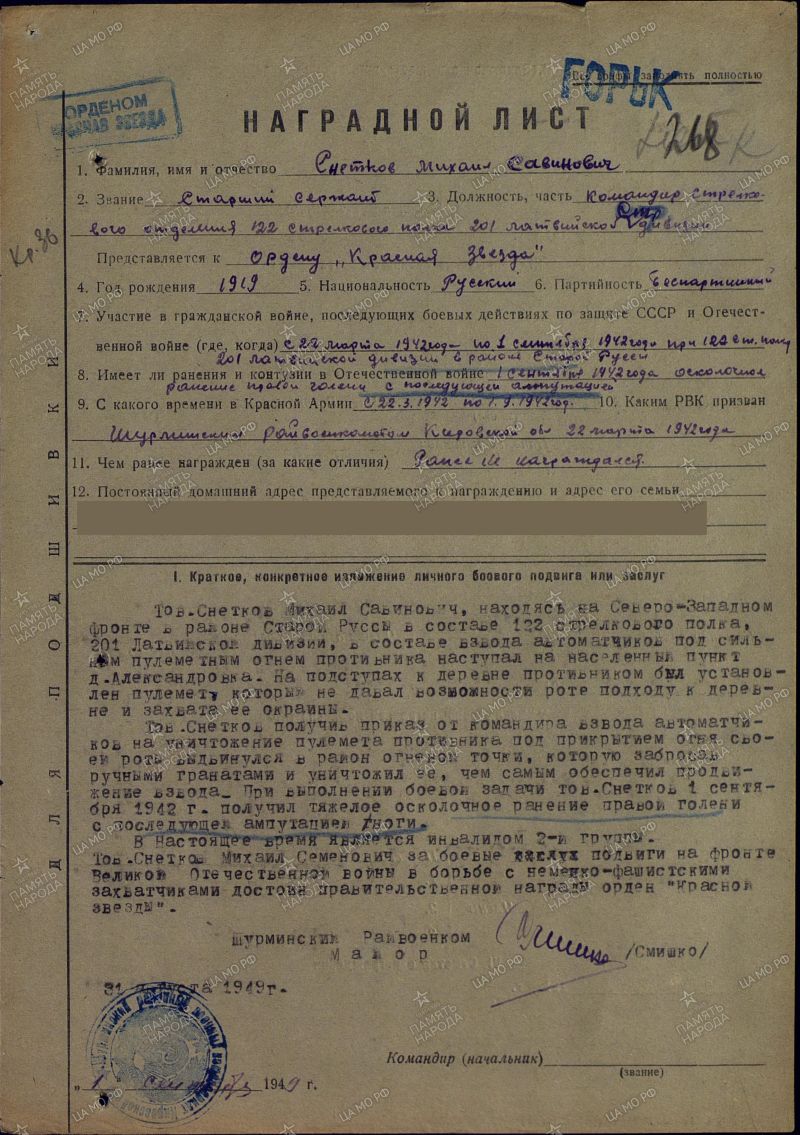 Все графы заполнять полностью
ГОРЬК
ОРДЕНОМ
КРАСНАЯ ЗВЕЗДА
НАГРАДНОЙ ЛИСТ
268
1. Фамилия, имя и отчество Снетков Михаил Савинович
2. Звание Старший сержант 3. Должность, часть Командир стрелко-
вого отделения 122 стрелкового полка 201 латвийской стр. дивизии
Представляется к Ордену „Красная Звезда"
4. Год рождения 1919 5. Национальность Русский 6. Партийность Беспартийный
7. Участие в гражданской войне, последующих боевых действиях по защите СССР и Отечест-
венной войне (где, когда) с 22 марта 1942 года по 1 сентября 1942 года при 122 ст. полку
201 латвийской дивизии в районе Старой Руссы
8. Имеет ли ранения и контузии в Отечественной войне 1 сентября 1942 года осколочное
ранение правой голени с последующей ампутацией
9. С какого времени в Красной Армии с 22.3.1942 по 1.9.1942 год. 10. Каким РВК призван
Шурминским райвоенкоматом Кировской обл 22 марта 1942 года
11. Чем ранее награжден (за какие отличия) Ранее не награждался.
12. Постоянный домашний адрес представляемого к награждению и адрес его семьи
ДЛЯ ПОДШИВКИ
I. Краткое, конкретное изложение личного боевого подвига или заслуг
Тов.Снетков Михаил Савинович, находясь на Северо-Западном
фронте в районе Старой Руссы в составе 122 стрелкового полка,
201 Латвийской дивизии, в составе взвода автоматчиков под силь-
ным пулеметным огнем противника наступал на населенный пункт
д.Александровка. На подступах к деревне противником был установ-
лен пулемет, который не давал возможности роте подходу к дерев-
не и захвата ее окраины.
Тов.Снетков получив приказ от командира взвода автоматчи-
ков на уничтожение пулемета противника под прикрытием огня сво-
ей роты выдвинулся в район огневой точки, которую забросал
ручными гранатами и уничтожил ее, чем самым обеспечил продви-
жение взвода. При выполнении боевой задачи тов.Снетков 1 сентя-
бря 1942 г. получил тяжелое осколочное ранение правой голени
с последующей ампутацией ноги.
В настоящее время является инвалидом 2-й группы.
Тов.Снетков Михаил Семенович за боевые подвиги на фронте
Великой Отечественной войны в борьбе с немецко-фашистскими
захватчиками достоин правительственной награды орден "Красной
звезды".
Шурминский Райвоенком
Майор /Смишко/
31 августа 1949г.
Командир (начальник)
(звание)
„1" сентября 1949 г.
ПАМЯТЬ НАРОДА
ЦАМО.РФ